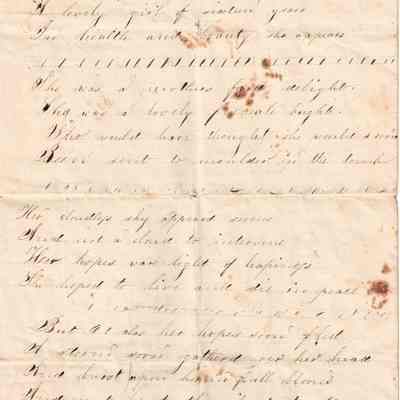 A lovely girl of sixteen years
In health and beauty she appears
She was a mothers fond delight.
She was a lovely female bright.
Who would have thought she would soon
Been sent to moulder in the tomb
Her cloudless sky appeard serene
And not a cloud to intervene
Her hopes was light of happiness
She hoped to live and die in peace
But alas her hopes soon fled
A storm soon gathered over her head
And burst upon her in full
And